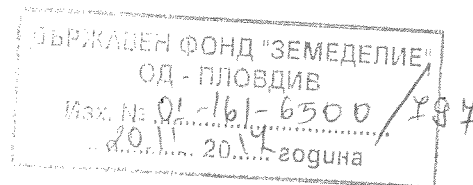 ДЪРЖАВЕН ФОНД "ЗЕМЕДЕЛИЕ"
ОД - ПЛОВДИВ
Изх. № 01-161-6500/797
20.11. 2017 година